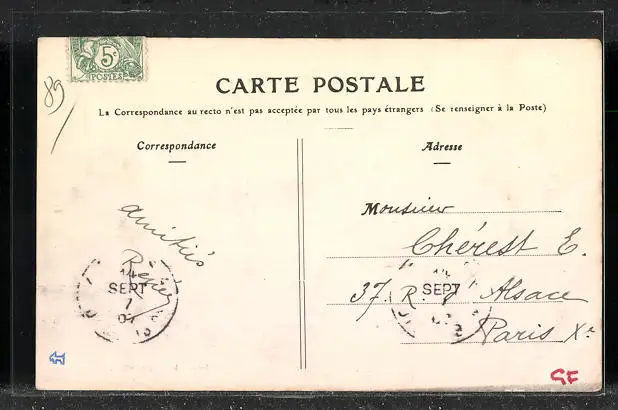 5c
POSTES
89
CARTE POSTALE
La Correspondance au recto n'est pas acceptée par tous les pays étrangers (Se renseigner à la Poste)
Correspondance
Adresse
amitiés
14
SEPT
Monsieur
Chérest E.
37, R. d'Alsace
SEPT
Paris Xe
GF